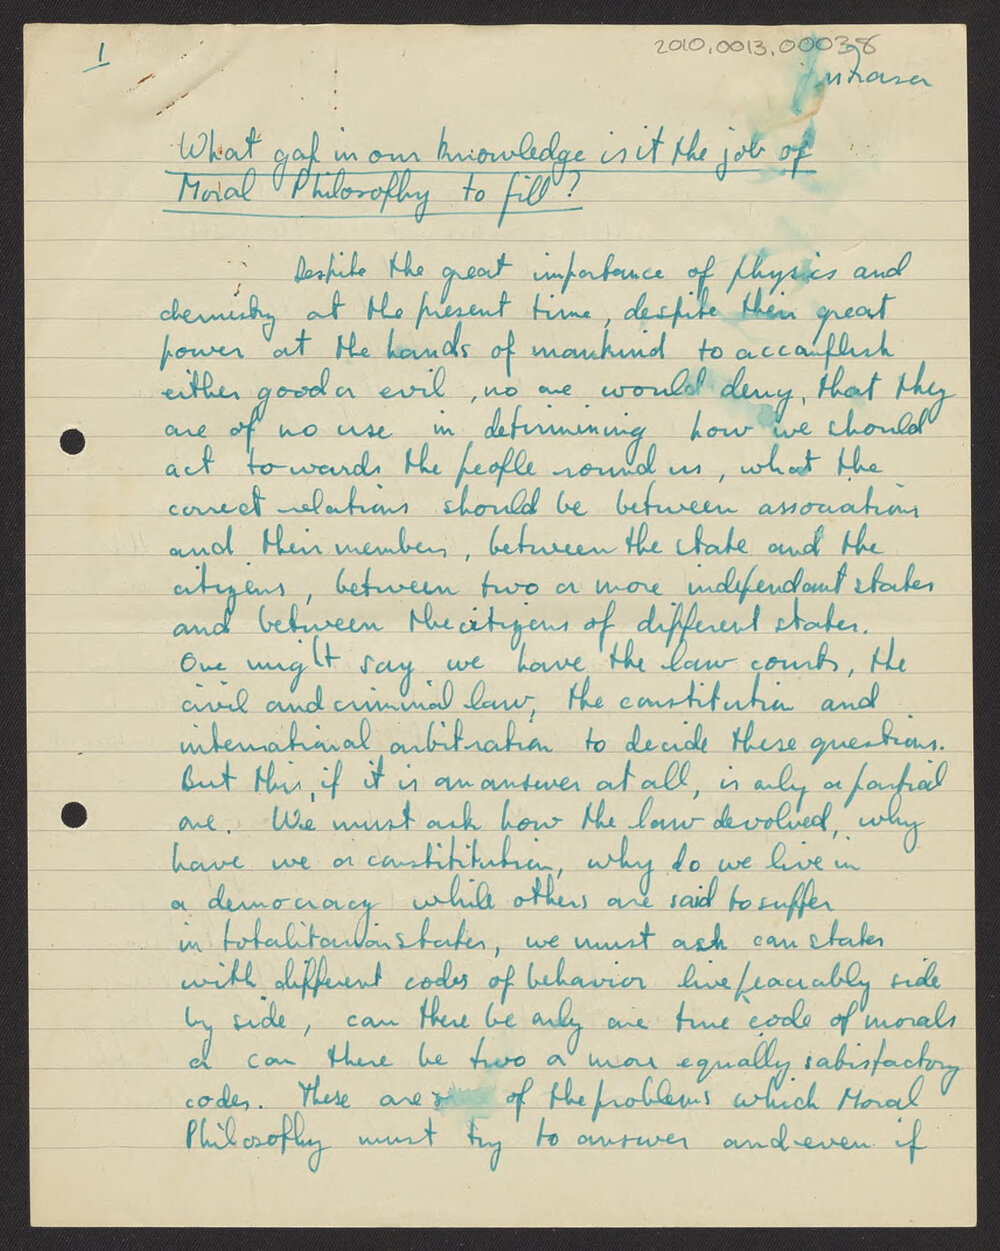 1
2010.0013.00038
Fraser
What gap in our knowledge is it the job of
Moral Philosophy to fill?
Despite the great importance of physics and
chemistry at the present time, despite their great
power at the hands of mankind to accomplish
either good or evil, no one would deny, that they
are of no use in determining how we should
act towards the people round us, what the
correct relations should be between associations
and their members, between the state and the
citizens, between two or more independant states
and between the citizens of different states.
One might say we have the law courts, the
civil and criminal law, the constitution and
international arbitration to decide these questions.
But this, if it is an answer at all, is only a partial
one. We must ask how the law devolved, why
have we a constititution, why do we live in
a democracy while others are said to suffer
in totalitarian states, we must ask can states
with different codes of behavior live peaceably side
by side, can there be only one true code of morals
or can there be two or more equally satisfactory
codes. These are of the problems which Moral
Philosophy must try to answer and even if